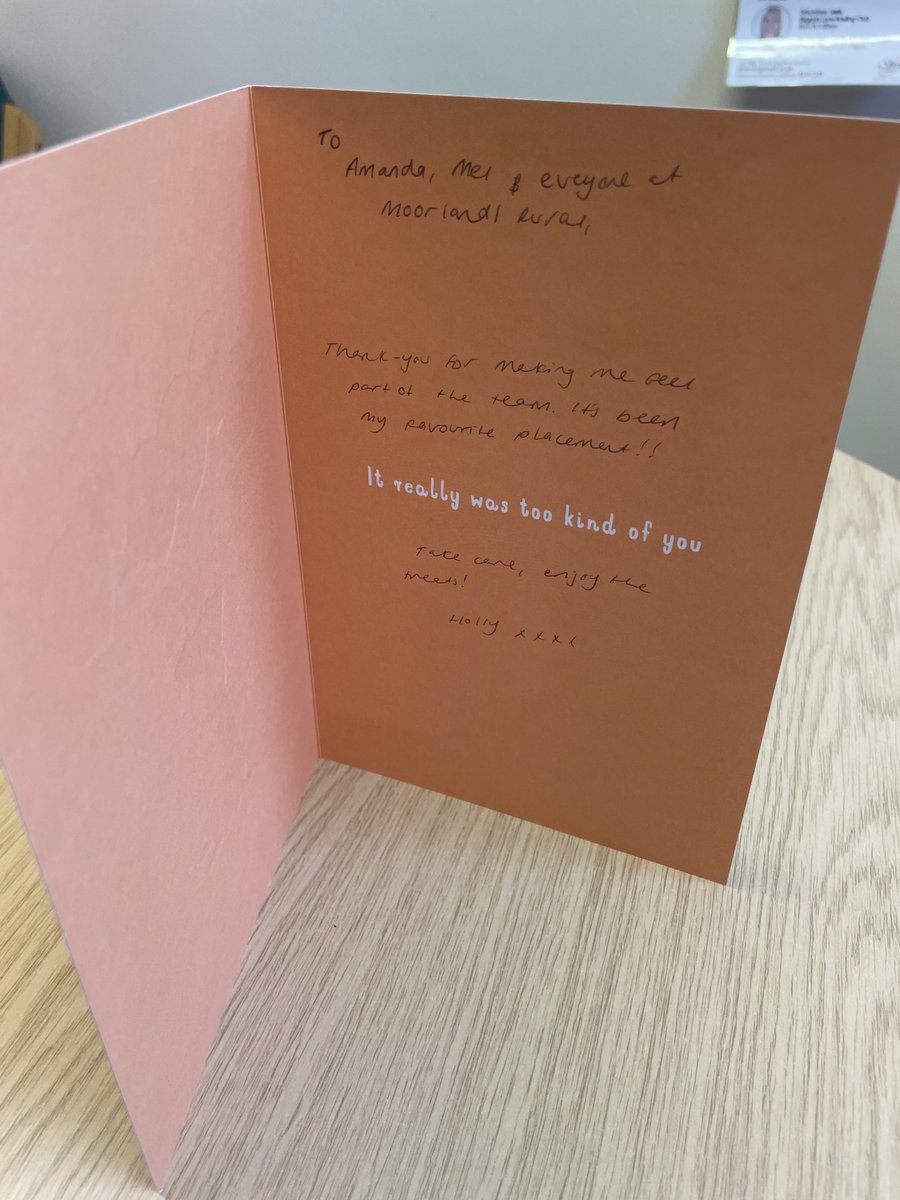 TO
Amanda, Mel & eveyone at
Moorlands Rural,
Thank-you for making me feel
part of the team. It's been
my favourite placement!!
It really was too kind of you
Take care, enjoy the
treats!
Holly x x x x